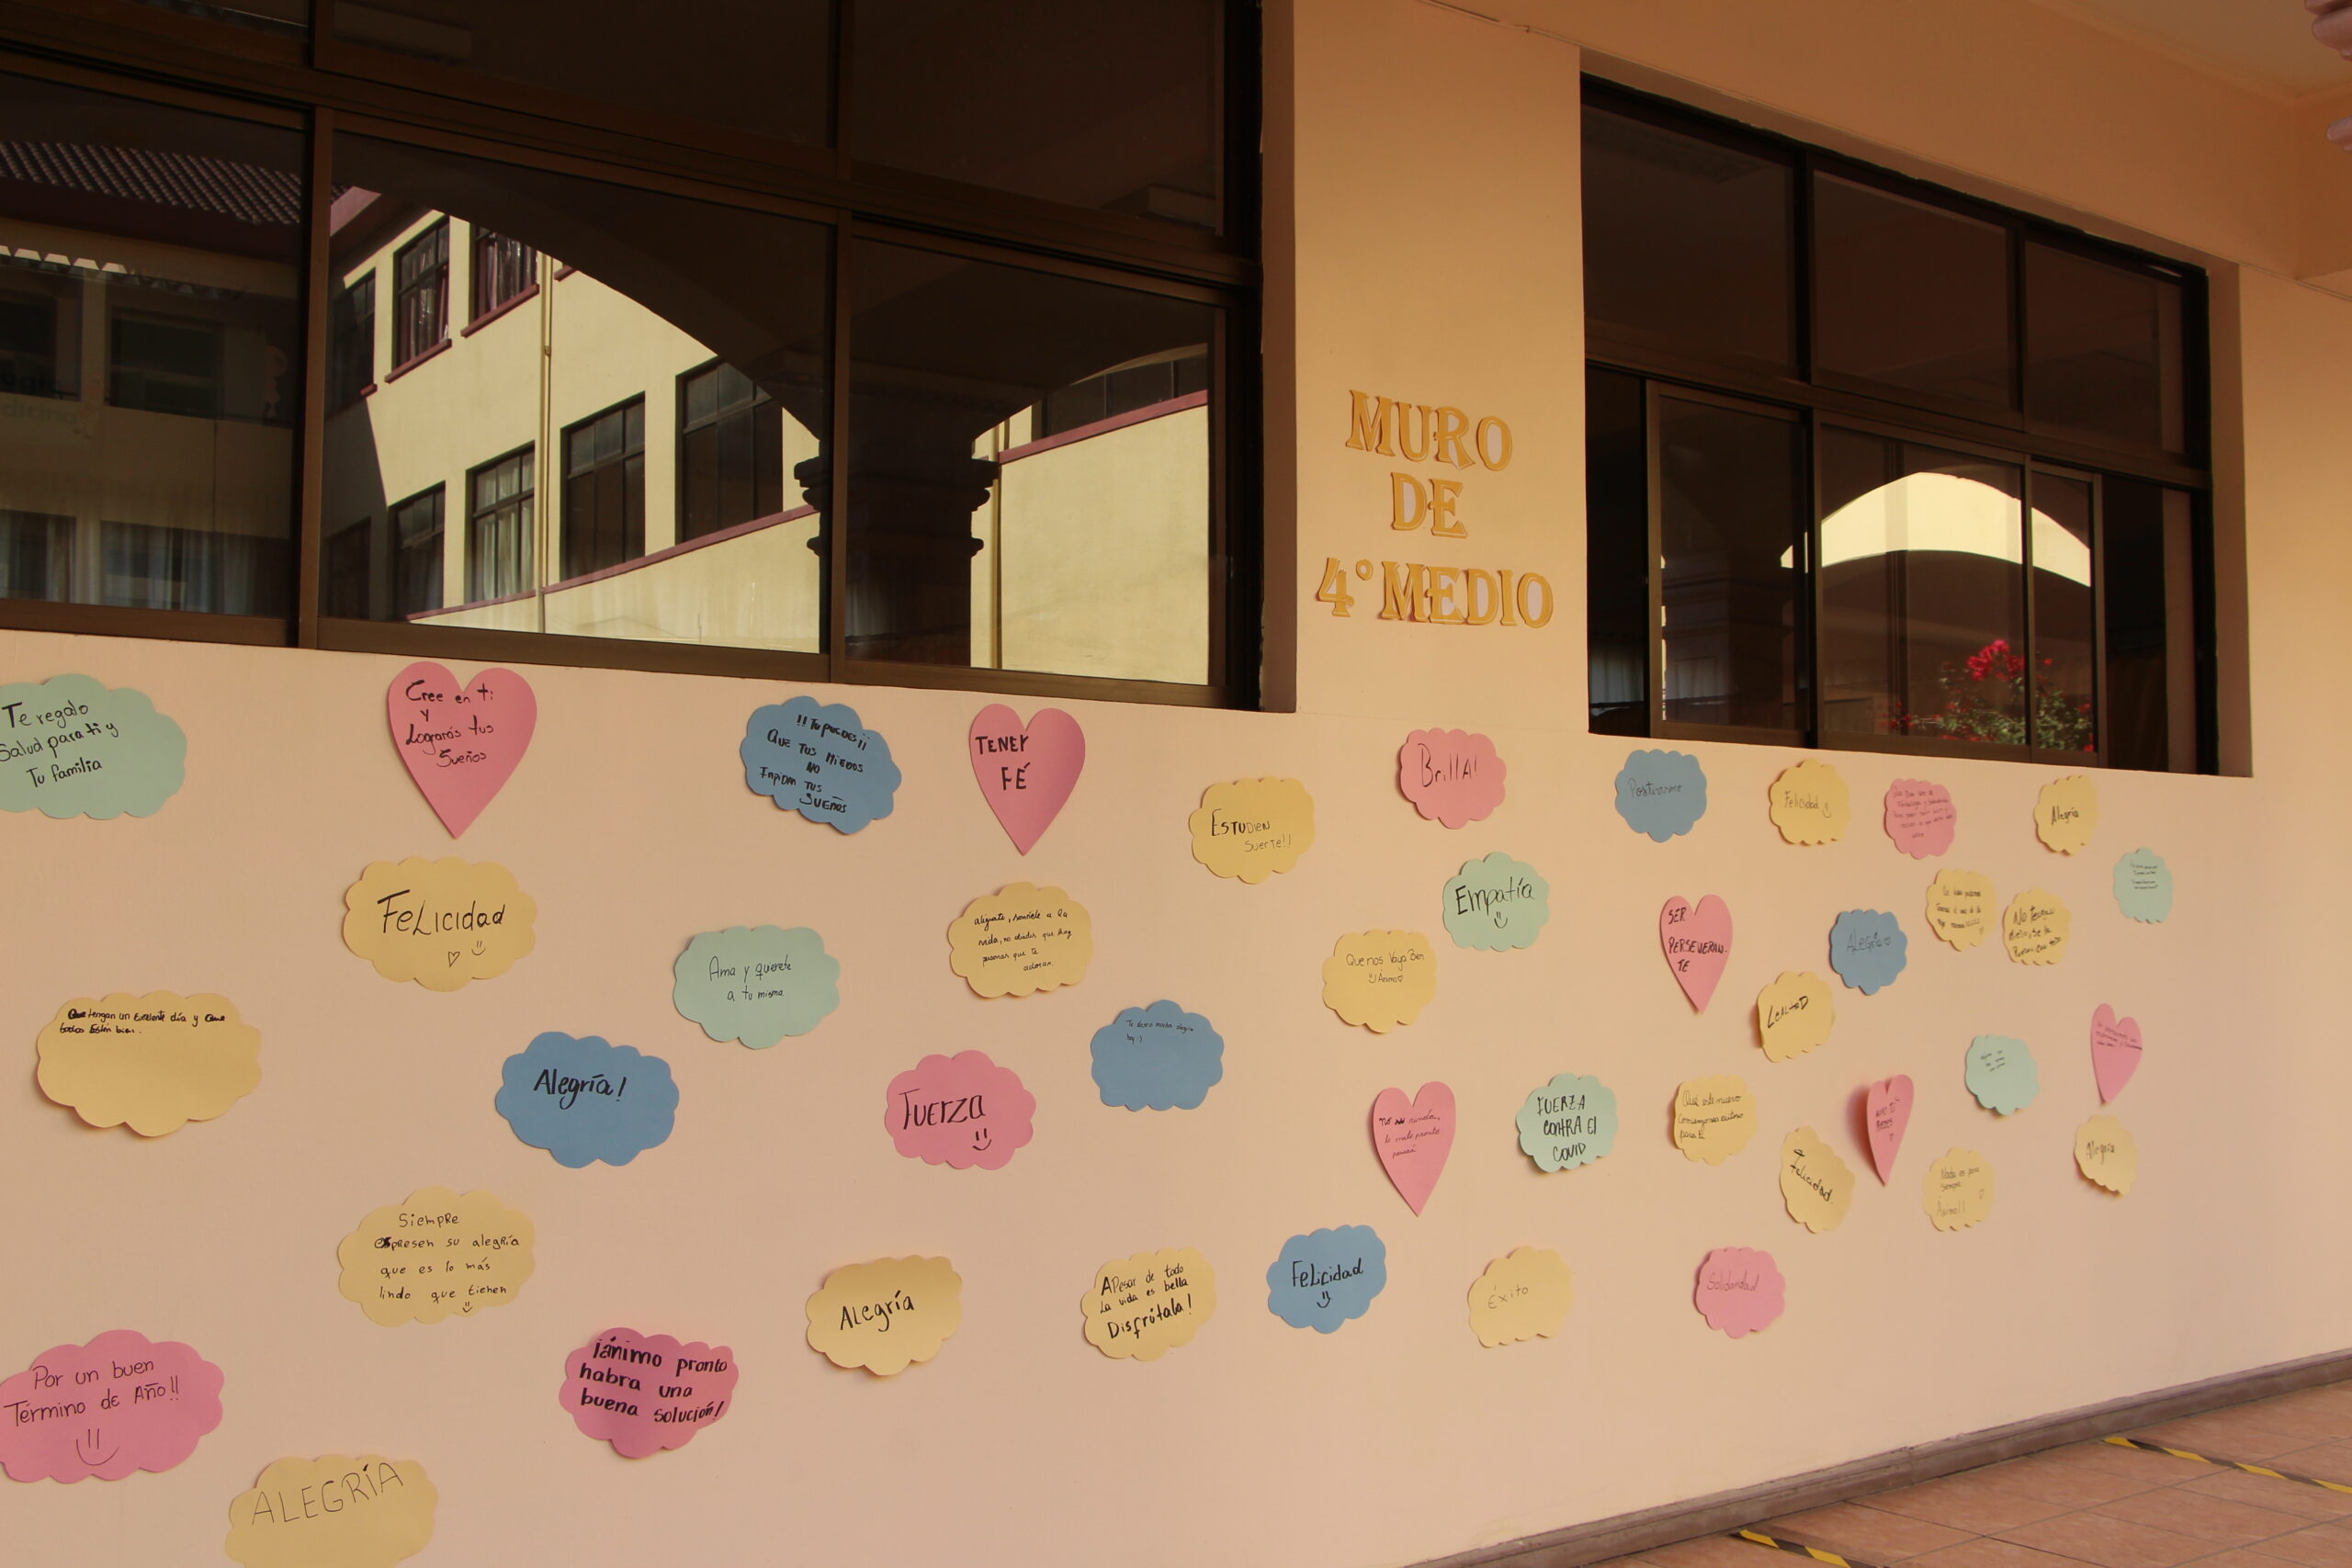 MURO
DE
4° MEDIO
Te regalo
Salud para ti y
Tu familia
Cree en ti
y
Lograrás tus
Sueños
!! Tu puedes ¡¡
Que tus miedos
no
Impidan tus
sueños
TENER
FÉ
ESTUDIEN
Suerte!!
BrillA!
Positivismo
Felicidad
Alegría
FeLicidad
Ama y quierete
a tu misma.
alegrate, sonríele a la
vida, no olvides que hay
personas que te
adoran.
Empatía
Que nos Vaya Bien
Ánimo
SER
PERSEVERAN-
TE
Alegría
LEALTAD
Que tengan un Exelente día y que
todos Estén bien.
Alegría!
Fuerza
Te deseo mucha alegría
hoy :)
lo malo pronto
pasará
FUERZA
CONTRA El
COVID
Qué este nuevo
para ti
Felicidad
Nada es para
siempre
Ánimo!!
Alegría
Siempre
espresen su alegría
que es lo más
lindo que tienen
Alegría
APesar de todo
La vida es bella
Disfrútala!
FeLicidad
Éxito
Solidaridad
Por un buen
Término de Año!!
¡ánimo pronto
habra una
buena solución!
ALEGRÍA